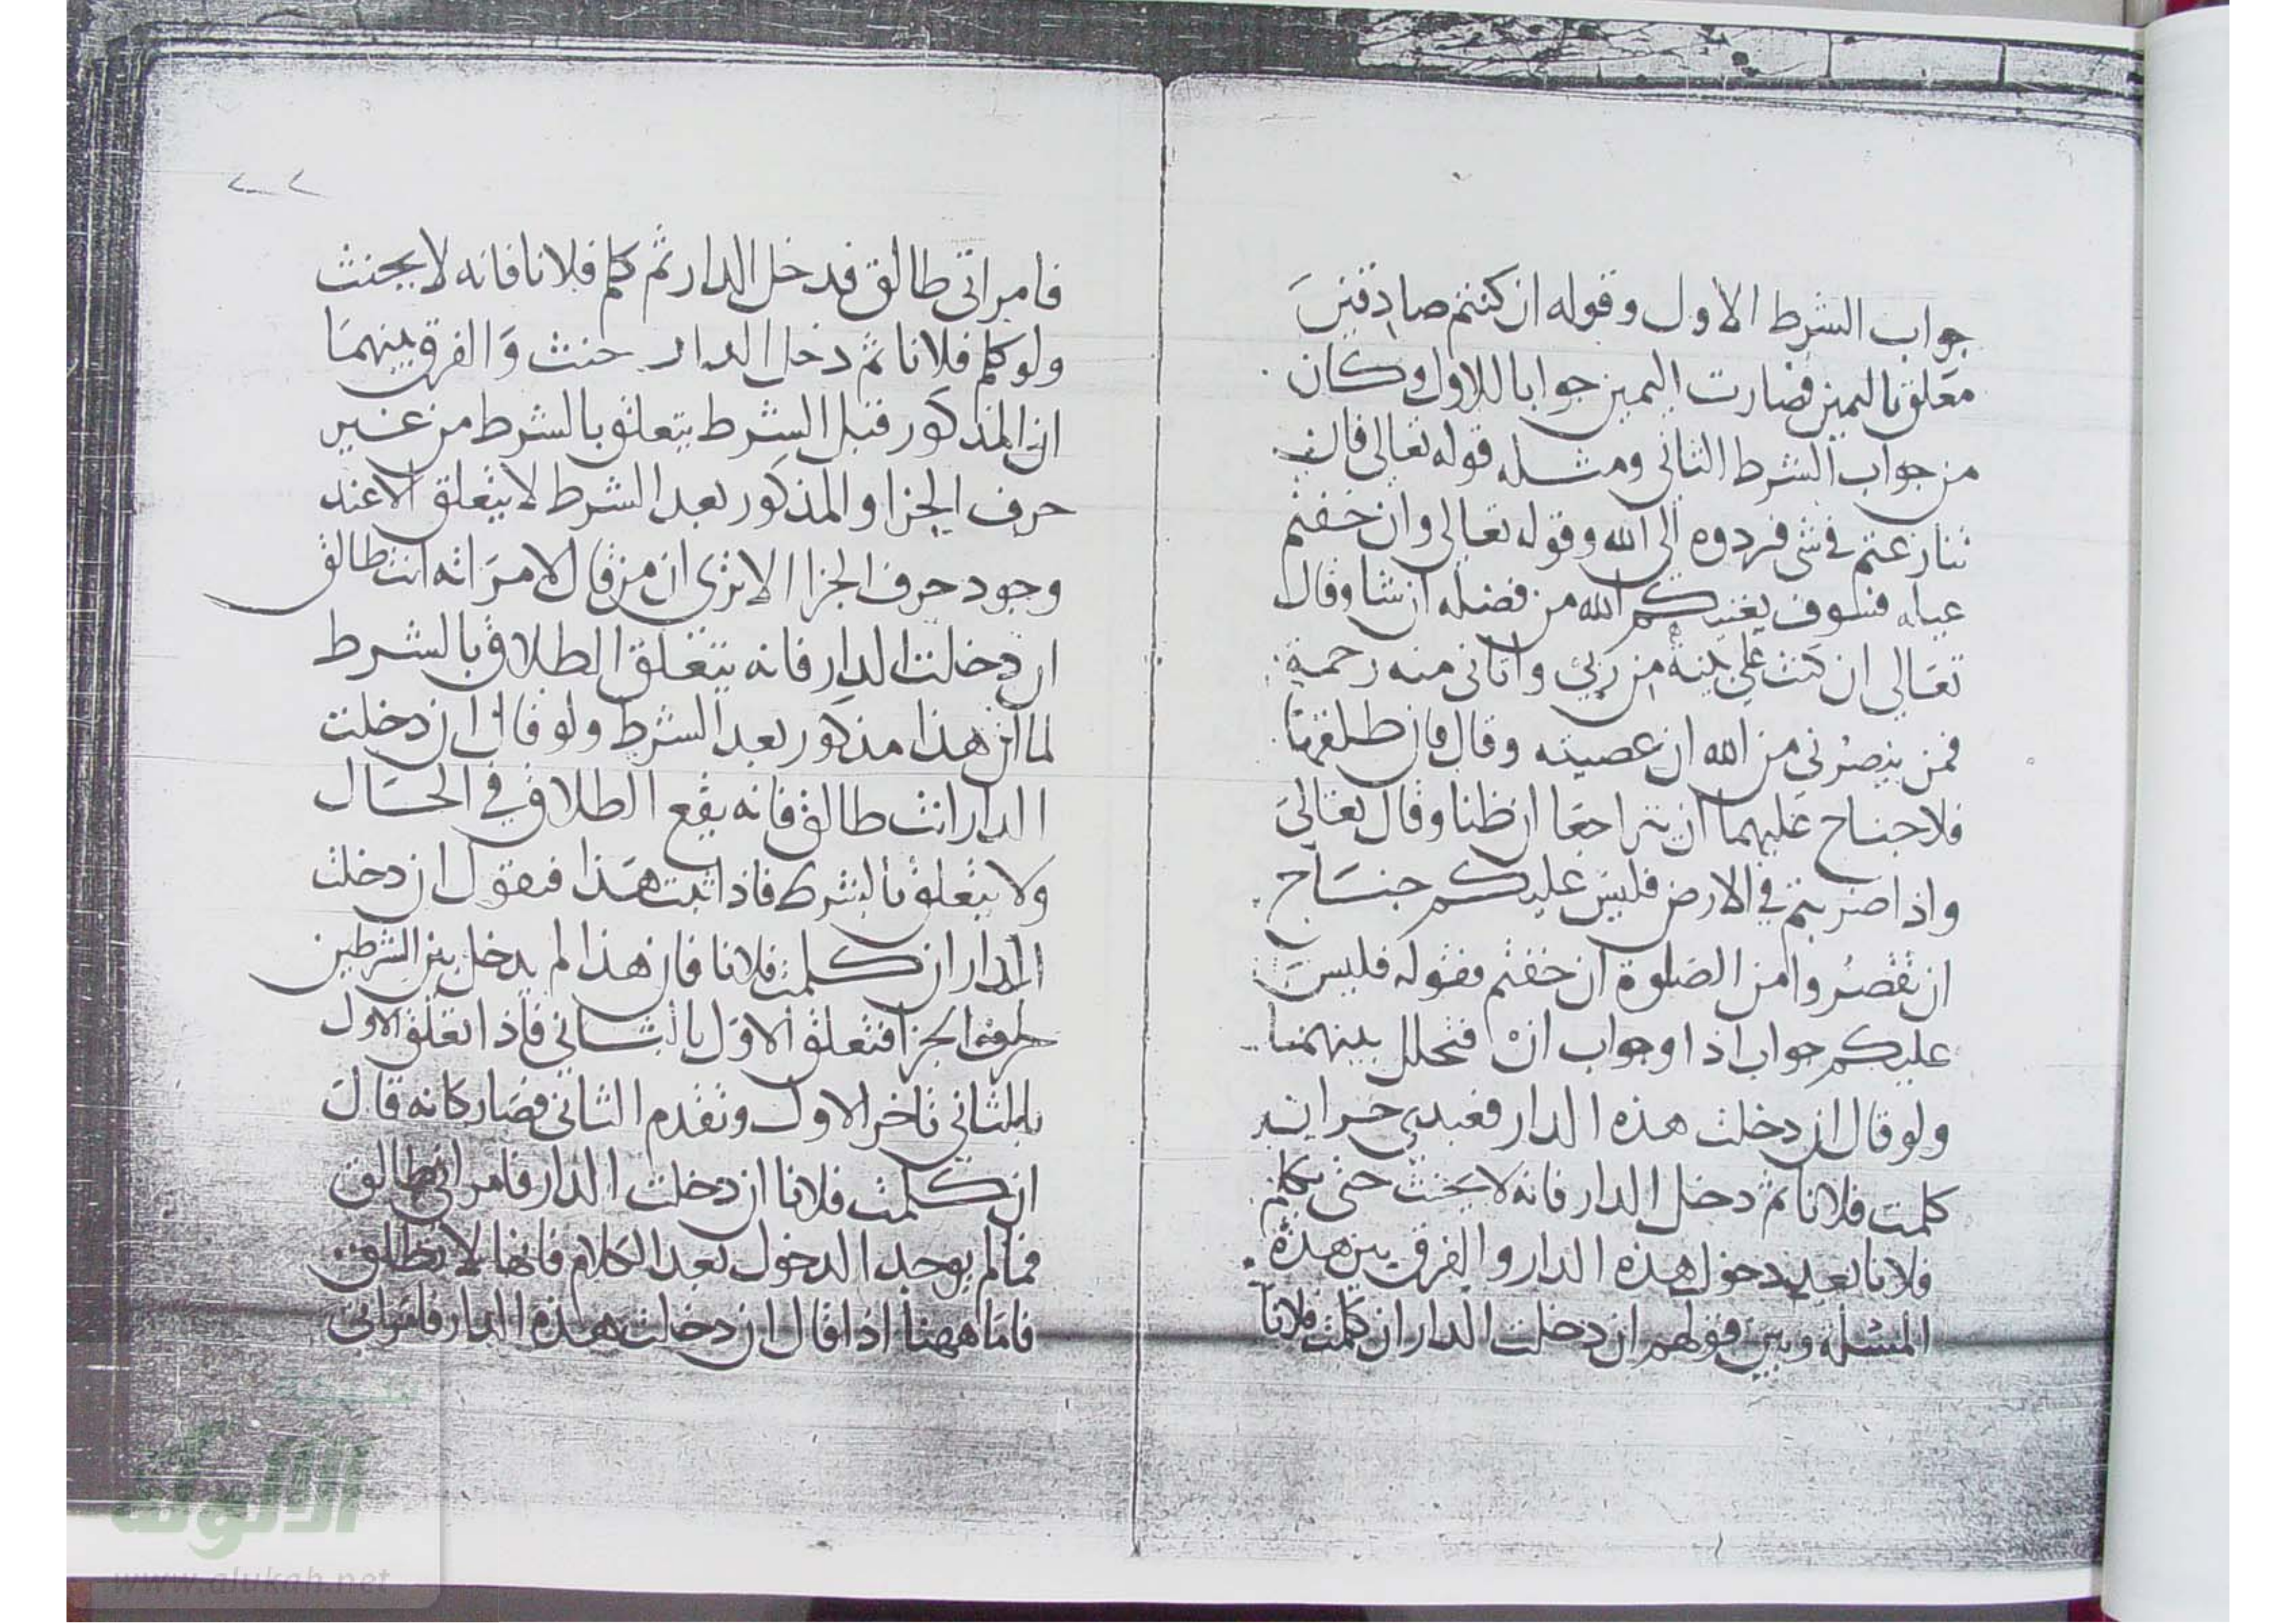 جواب الشرط الاول وقوله ان كنتم صادقين
معلق باليمين فصارت اليمين جوابا للاول وكان
من جواب الشرط الثاني ومثله قوله تعالى فان
تنازعتم في شي فردوه الى الله وقوله تعالى وان خفتم
عيله فسوف يغنيكم الله من فضله ان شا وقال
تعالى ان كنت على بينة من ربي واتاني منه رحمة
فمن ينصرني من الله ان عصيته وقال فان طلقها
فلا جناح عليهما ان يتراجعا ان ظنا وقال تعالى
واذا ضربتم في الارض فليس عليكم جناح
ان تقصروا من الصلوة ان خفتم فقوله فليس
عليكم جواب اذا وجواب ان فتخلل بينهما
ولو قال ان دخلت هذه الدار فعبدي حر ان
كلمت فلانا ثم دخل الدار فانه لا يحنث حتى يكلم
فلانا بعد دخول هذه الدار والفرق بين هذه
المسئلة وبين قولهم ان دخلت الدار ان كلمت فلانا
٢٠٢
فامراتي طالق فدخل الدار ثم كلم فلانا فانه لا يحنث
ولو كلم فلانا ثم دخل الدار حنث والفرق بينهما
ان المذكور قبل الشرط يتعلق بالشرط من غير
حرف الجزا والمذكور بعد الشرط لا يتعلق الا عند
وجود حرف الجزا الا ترى ان من قال لامراته انت طالق
ان دخلت الدار فانه يتعلق الطلاق بالشرط
لما ان هذا مذكور بعد الشرط ولو قال ان دخلت
الدار انت طالق فانه يقع الطلاق في الحال
ولا يتعلق بالشرط فاذا ثبت هذا فنقول ان دخلت
الدار ان كلمت فلانا فان هذا لم يدخل بين الشرطين
حرف الجزا فتعلق الاول بالثاني فاذا تعلق الاول
بالثاني تاخر الاول وتقدم الثاني فصار كانه قال
ان كلمت فلانا ان دخلت الدار فامراتي طالق
فما لم يوجد الدخول بعد الكلام فانها لا تطلق
فاما ههنا اذا قال ان دخلت هذه الدار فامراتي
شبكة
الألوكة
www.alukah.net